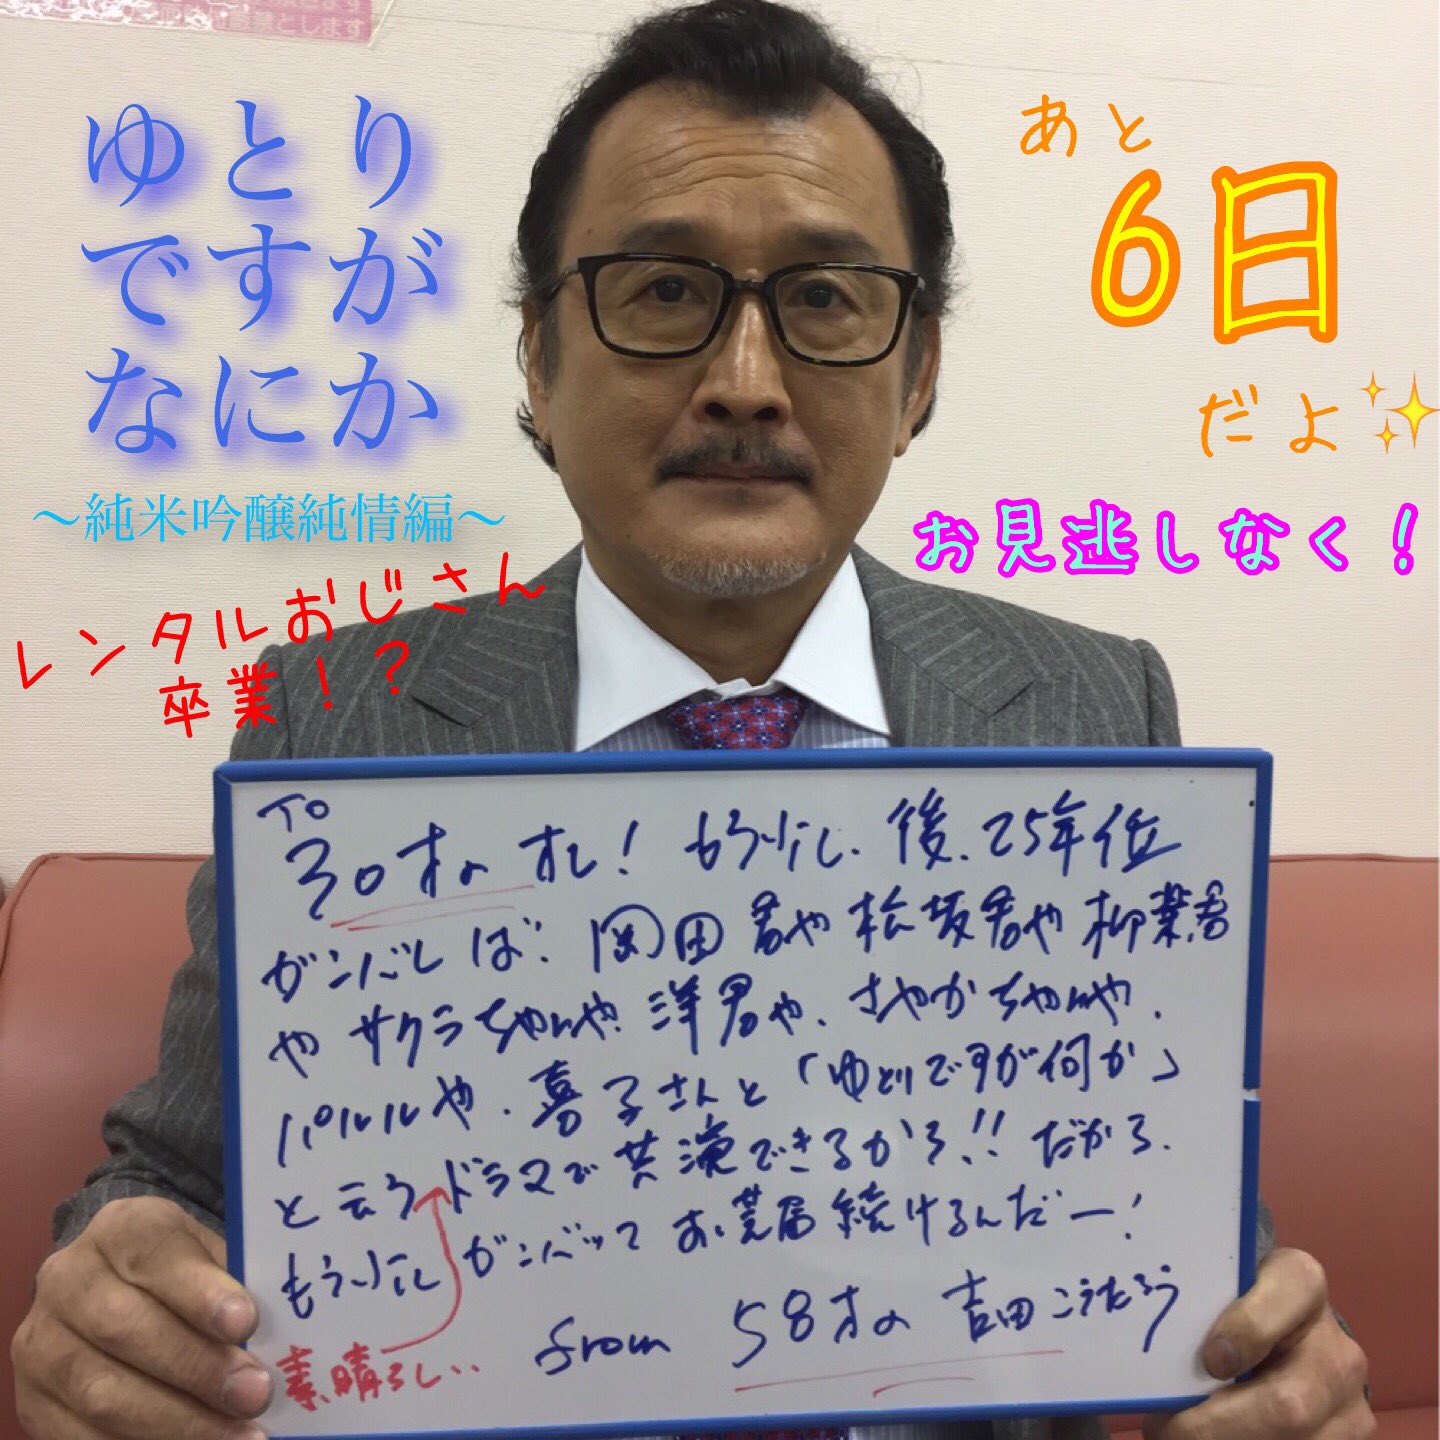 ゆとり
ですが
なにか
〜純米吟醸純情編〜
レンタルおじさん
卒業!?
あと
6日
だよ✨
お見逃しなく!
To
30才のオレ! もう少し、後、25年位
ガンバレば、岡田君や松坂君や柳葉君
やサクラちゃんや洋君や、さやかちゃんや、
パルルや、喜子さんと「ゆとりですが何か」
と云うドラマで共演できるから!!だから、
もう少しガンバッてお芝居続けるんだー!
素晴らしい
from 58才の 吉田こうたろう